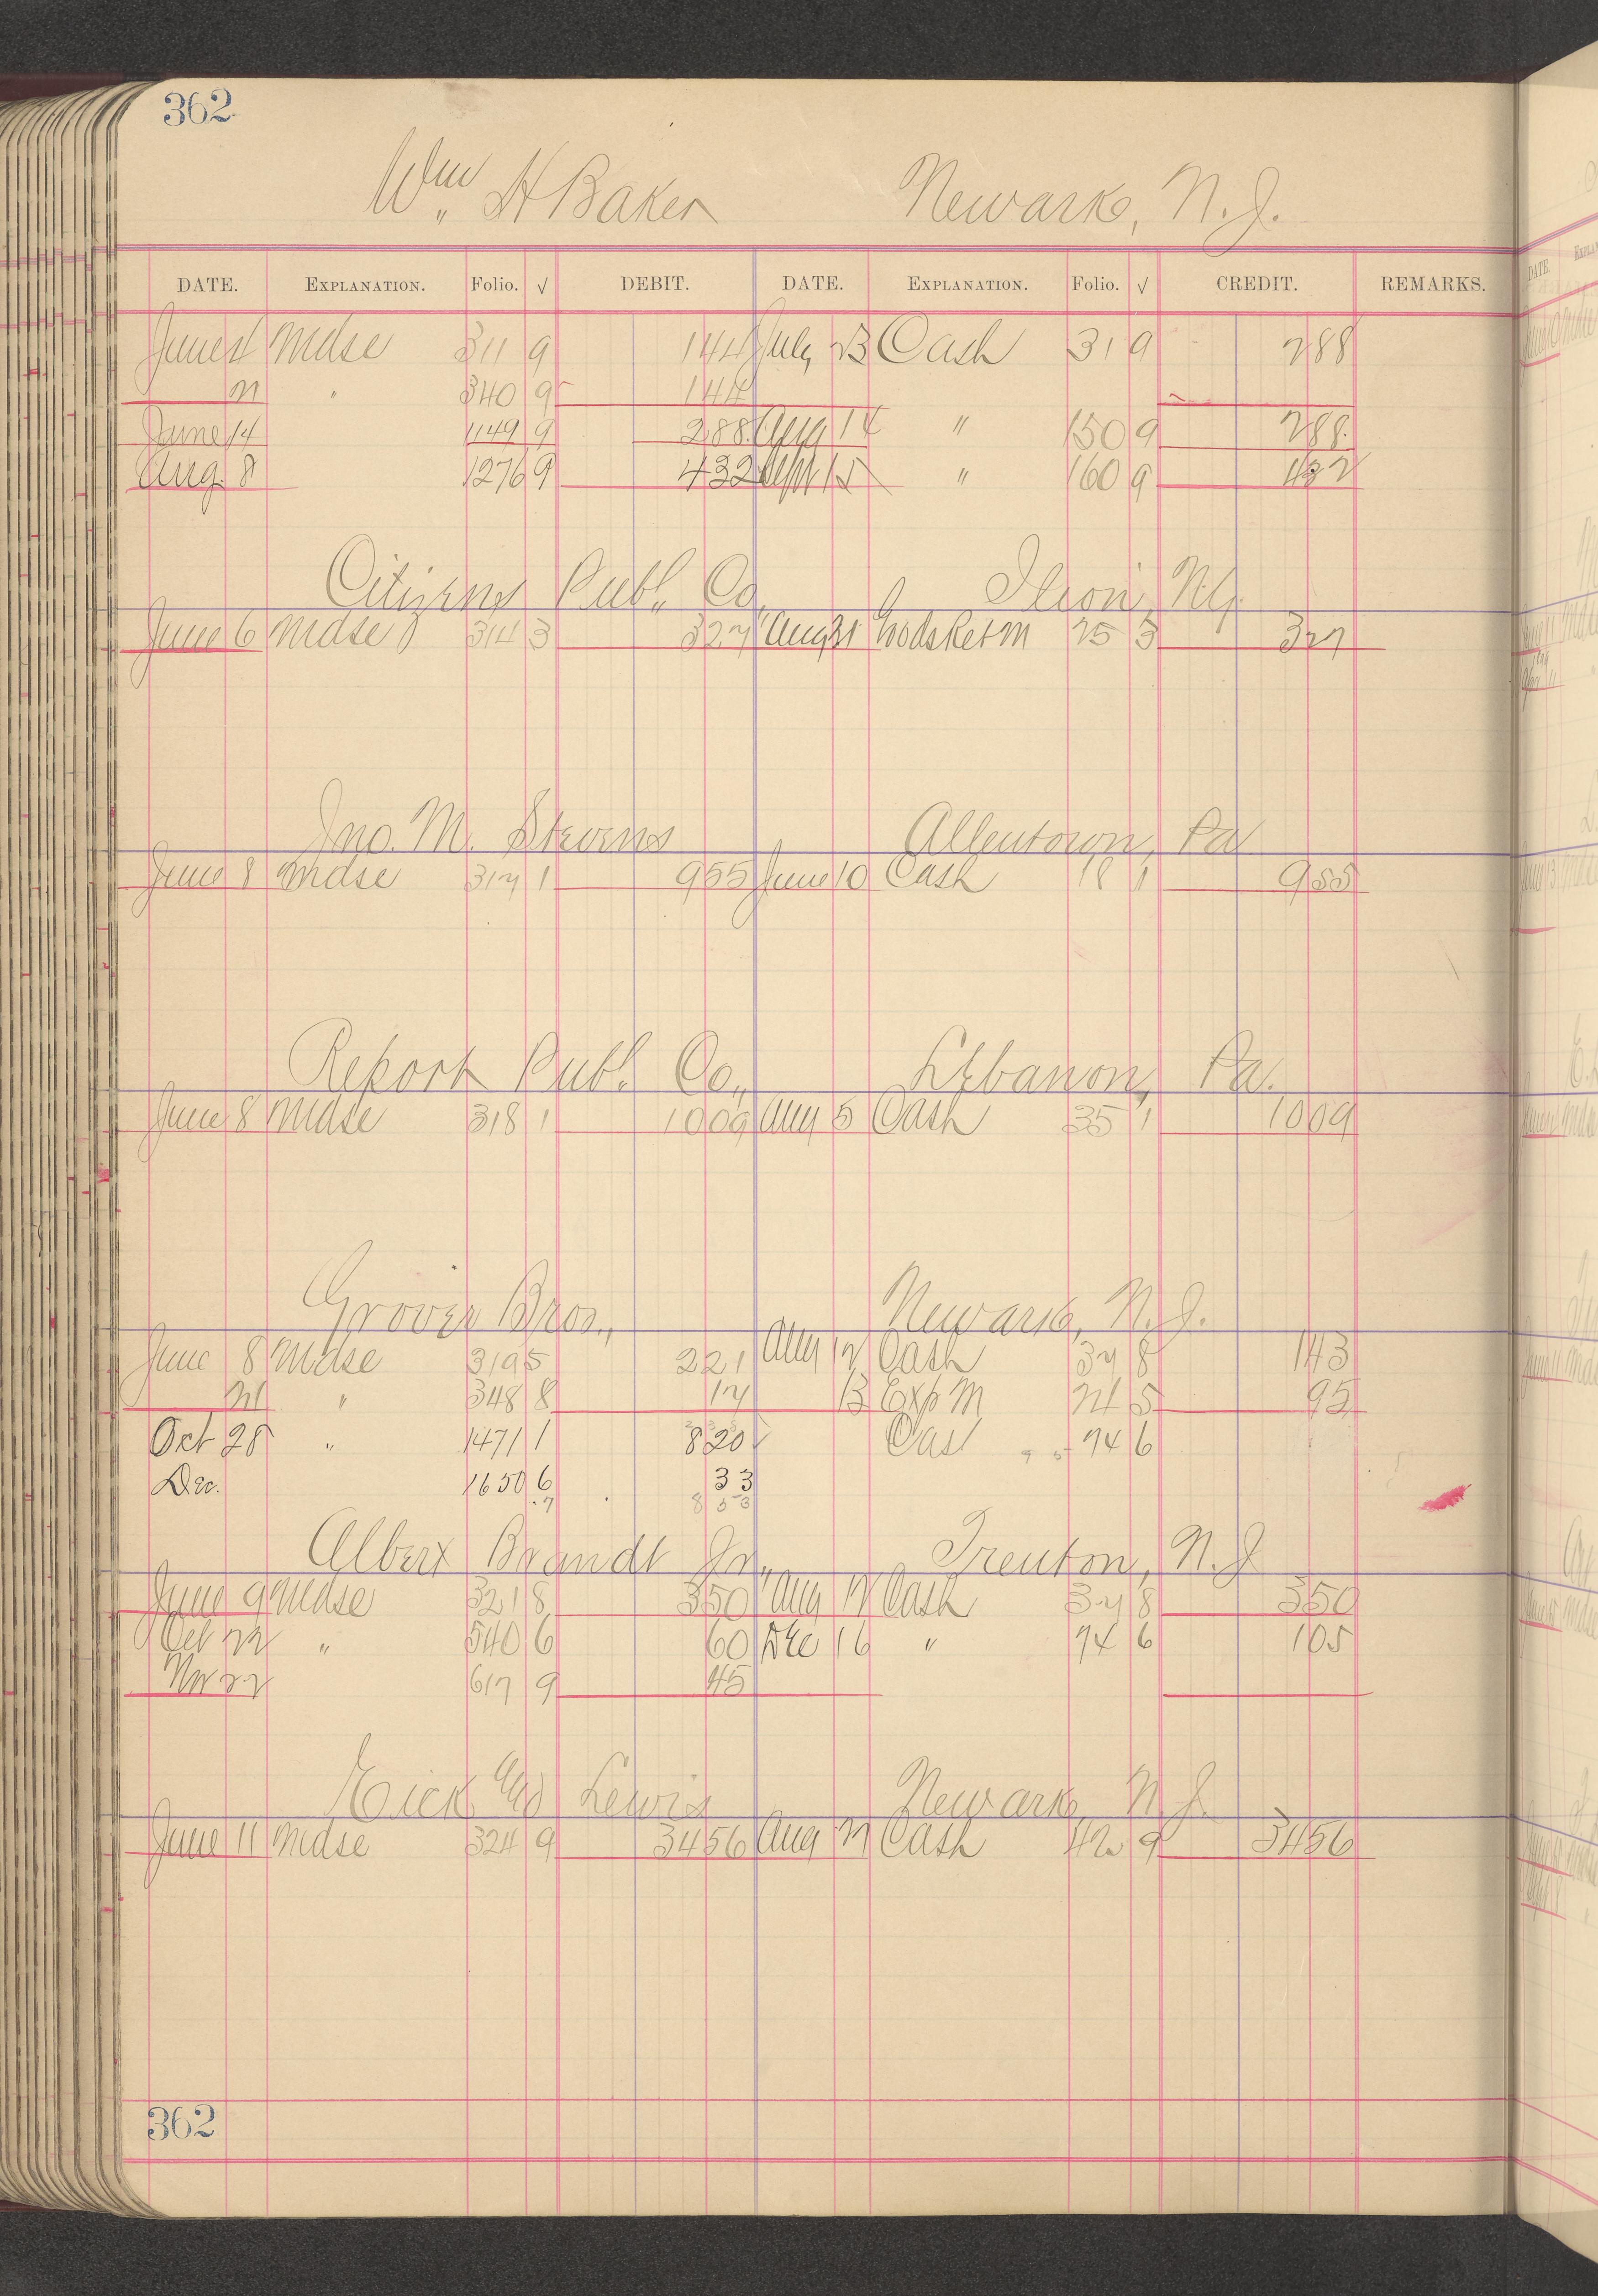 362
Wm. H Baker Newark, N. J.
DATE. EXPLANATION. Folio. √ DEBIT. DATE. EXPLANATION. Folio. √ CREDIT. REMARKS.
June 1 Mdse 311 9 144 July 23 Cash 31 9 288
21 " 340 9 144
June 14 1149 9 288 Aug 14 " 150 9 288
Aug. 8 1276 9 432 Sept 15 " 160 9 432
Citizens Publ. Co. Ilion, N.Y.
June 6 Mdse 314 3 327 Aug 31 25 3 327
Jno. M. Stevens Allentown, Pa
June 8 Mdse 317 1 955 June 10 Cash 18 1 955
Report Publ. Co., Lebanon, Pa.
June 8 Mdse 318 1 1009 Aug 5 Cash 35 1 1009
Grover Bros., Newark, N. J.
June 8 Mdse 319 5 221 Aug 12 Cash 37 8 143
21 " 348 8 17 13 Exp M 21 5 95
Oct 28 " 1471 1 820 74 6
Dec. 1650 6 33
853
Albert Brandt Jr., Trenton, N.J
June 9 Mdse 321 8 350 Aug 12 Cash 37 8 350
Oct 22 " 540 6 60 Dec 16 " 74 6 105
Nov 22 617 9 45
Lewis Newark, N. J.
June 11 Mdse 324 9 3456 Aug 27 Cash 42 9 3456
362